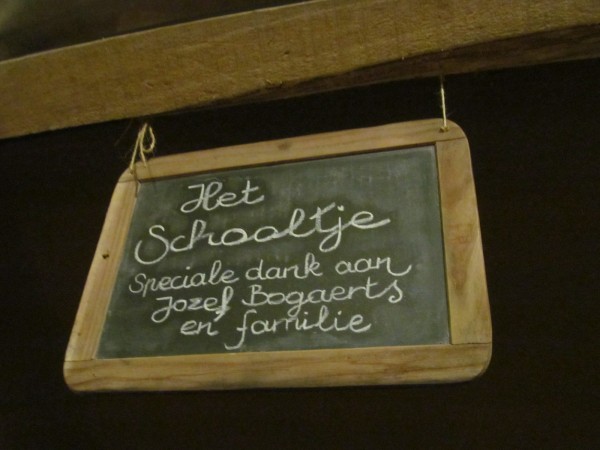 Het
Schooltje
Speciale dank aan
Jozef Bogaerts
en familie